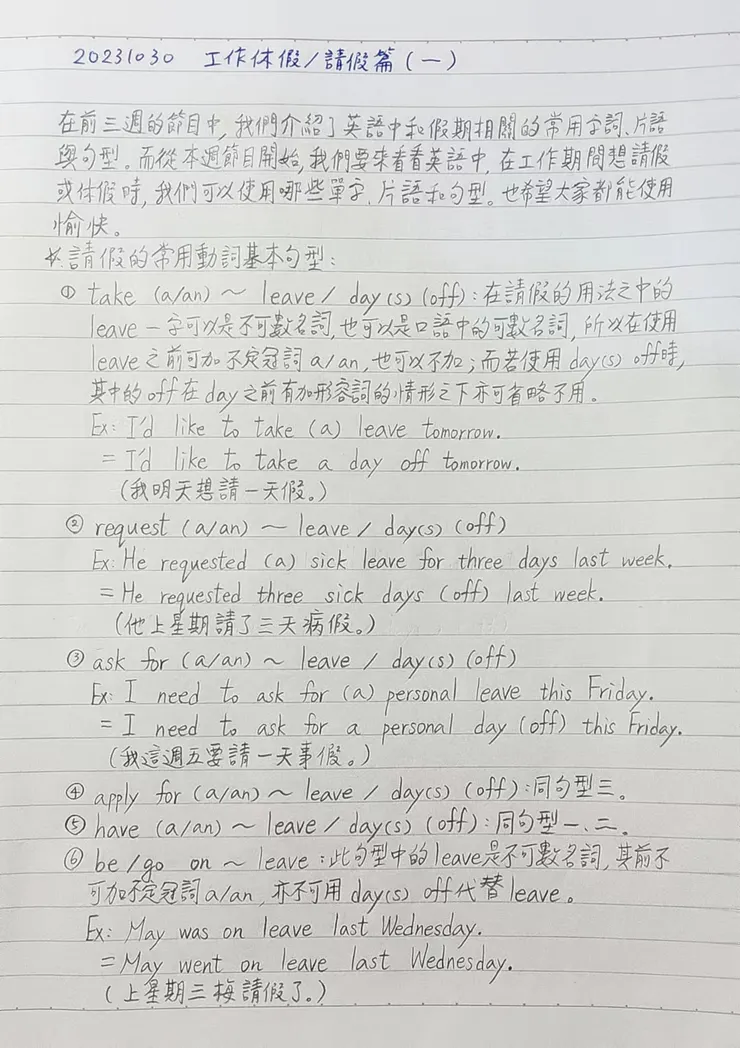 20231030 工作休假/請假篇(一)
在前三週的節目中,我們介紹了英語中和假期相關的常用字詞、片語
與句型。而從本週節目開始,我們要來看看英語中,在工作期間想請假
或休假時,我們可以使用哪些單字、片語和句型。也希望大家都能使用
愉快。
☆請假的常用動詞基本句型:
① take (a/an) ~ leave / day(s) (off):在請假的用法之中的
leave一字可以是不可數名詞,也可以是口語中的可數名詞,所以在使用
leave之前可加不定冠詞a/an,也可以不加;而若使用day(s) off時,
其中的off在day之前有加形容詞的情形之下亦可省略不用。
Ex: I'd like to take (a) leave tomorrow.
= I'd like to take a day off tomorrow.
(我明天想請一天假。)
② request (a/an) ~ leave / day(s) (off)
Ex: He requested (a) sick leave for three days last week.
= He requested three sick days (off) last week.
(他上星期請了三天病假。)
③ ask for (a/an) ~ leave / day(s) (off)
Ex: I need to ask for (a) personal leave this Friday.
= I need to ask for a personal day (off) this Friday.
(我這週五要請一天事假。)
④ apply for (a/an) ~ leave / day(s) (off):同句型三。
⑤ have (a/an) ~ leave / day(s) (off):同句型一、二。
⑥ be/go on ~ leave:此句型中的leave是不可數名詞,其前不
可加不定冠詞a/an,亦不可用day(s) off代替leave。
Ex: May was on leave last Wednesday.
= May went on leave last Wednesday.
(上星期三梅請假了。)